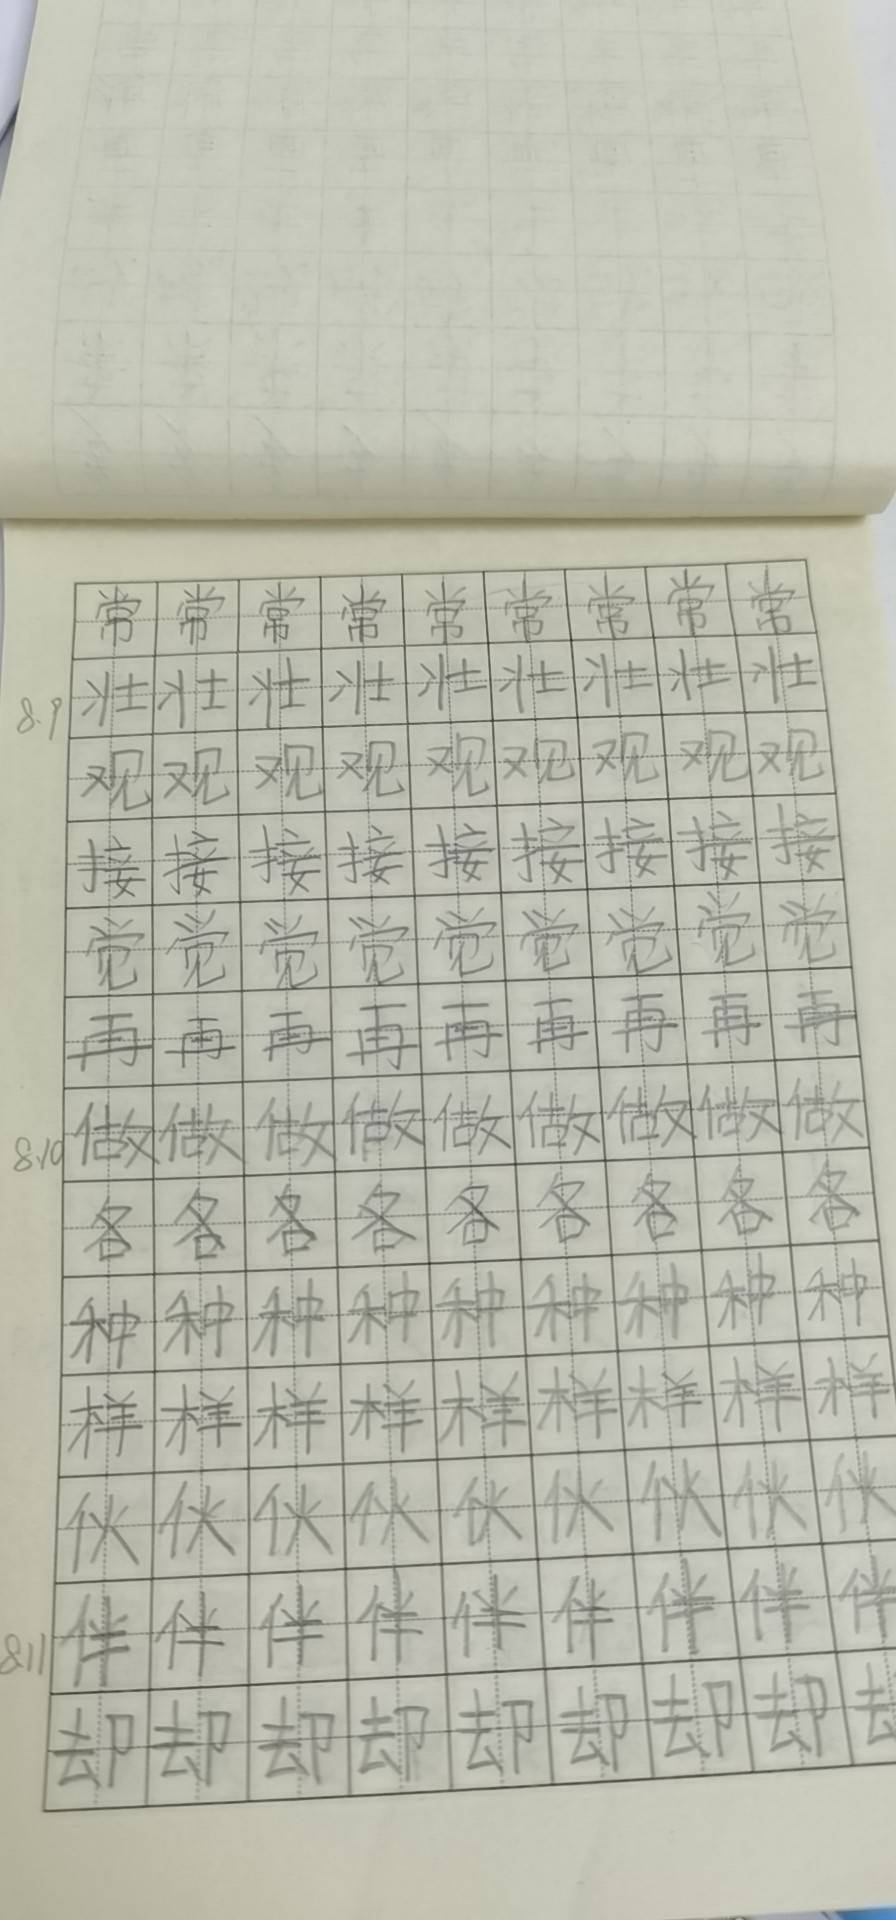 常常常常常常常常常
8.9 壮壮壮壮壮壮壮壮壮
观观观观观观观观观
接接接接接接接接接
觉觉觉觉觉觉觉觉觉
再再再再再再再再再
8.10 做做做做做做做做做
各各各各各各各各各
种种种种种种种种种
样样样样样样样样样
伙伙伙伙伙伙伙伙伙
8.11 伴伴伴伴伴伴伴伴伴
却却却却却却却却去